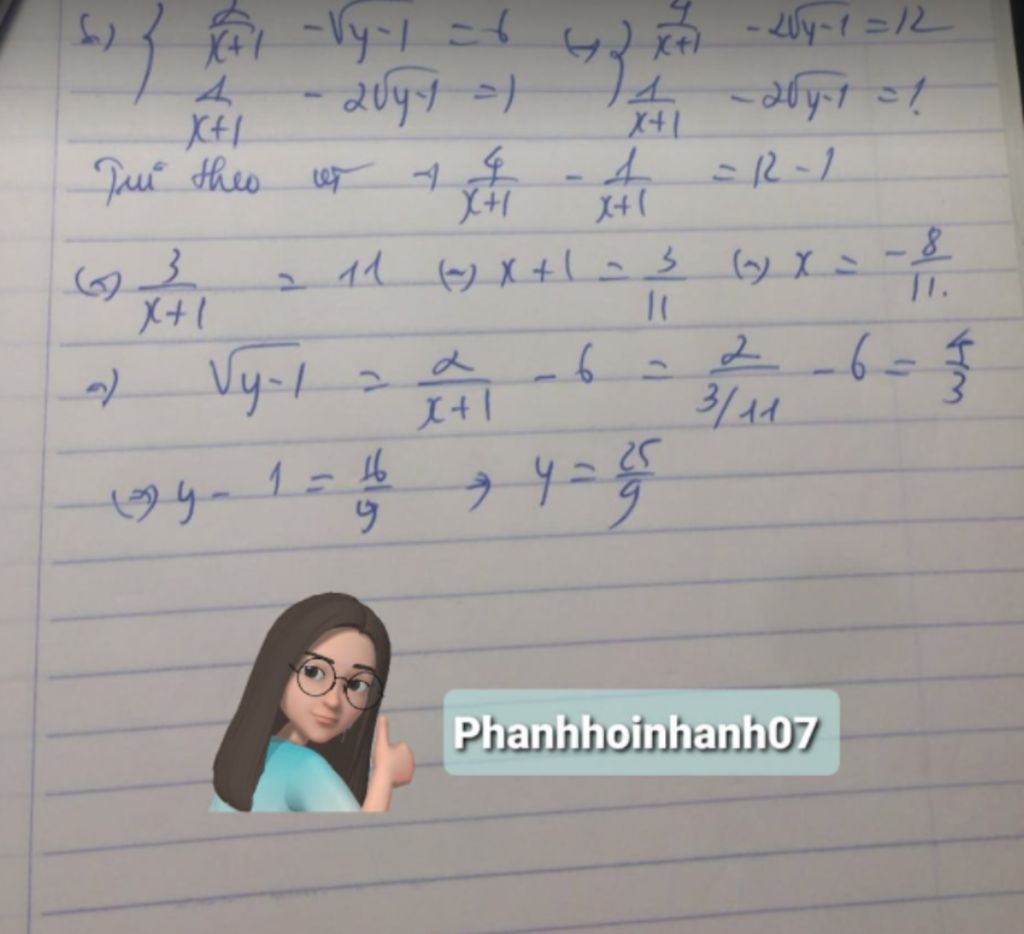 b) { 2/(x+1) - √(y-1) = 6 (→) { 4/(x+1) - 2√(y-1) = 12
1/(x+1) - 2√(y-1) = 1 1/(x+1) - 2√(y-1) = 1
Trừ theo vế → 4/(x+1) - 1/(x+1) = 12 - 1
(=) 3/(x+1) = 11 (=) x + 1 = 3/11 (=) x = -8/11.
=) √(y-1) = 2/(x+1) - 6 = 2/(3/11) - 6 = 4/3
(=) y - 1 = 16/9 → y = 25/9
Phanhhoinhanh07